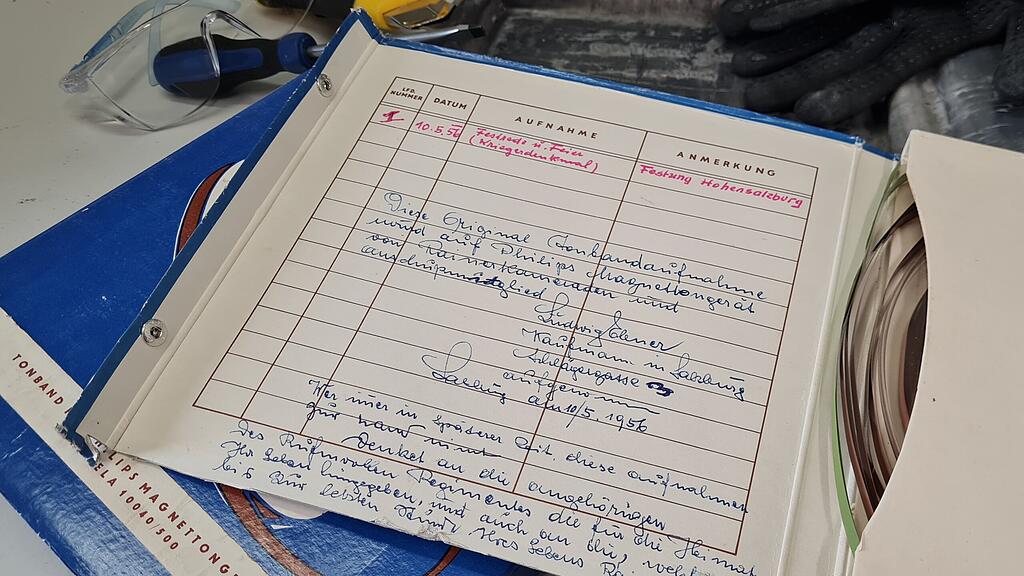 LFD. NUMMER
DATUM
AUFNAHME
ANMERKUNG
1
10.5.56
Festrede u. Feier
(Kriegerdenkmal)
Festung Hohensalzburg
Diese Original Tonbandaufnahme
wurd auf Philips Magnettongerät
von Rainerkameraden und
Ludwig
Kaufmann in Salzburg
aufgenommen
Salzburg am 10/5 1956
Wer in späterer Zeit diese aufnahmen
Denket an die angehörigen
des Rumvollen Regimentes die für die Heimat
Ihr Leben hingegeben, und auch an die,
bis zur letzten ihres Lebens
TONBAND
PS MAGNETTONG
ELA 10040/500